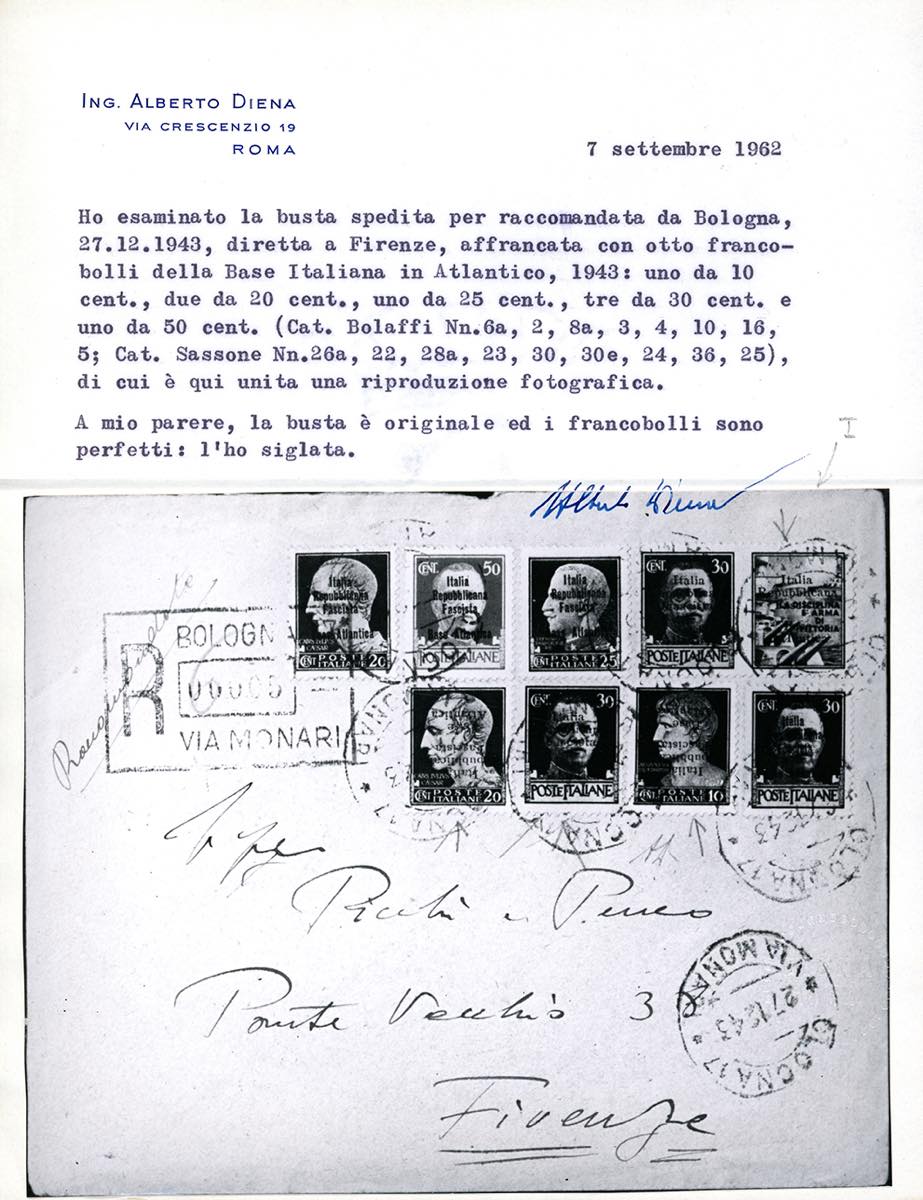 ING. ALBERTO DIENA
VIA CRESCENZIO 19
ROMA
7 settembre 1962
Ho esaminato la busta spedita per raccomandata da Bologna,
27.12.1943, diretta a Firenze, affrancata con otto franco-
bolli della Base Italiana in Atlantico, 1943: uno da 10
cent., due da 20 cent., uno da 25 cent., tre da 30 cent. e
uno da 50 cent. (Cat. Bolaffi Nn.6a, 2, 8a, 3, 4, 10, 16,
5; Cat. Sassone Nn.26a, 22, 28a, 23, 30, 30e, 24, 36, 25),
di cui è qui unita una riproduzione fotografica.
A mio parere, la busta è originale ed i francobolli sono
perfetti: l'ho siglata.
I
Alberto Diena
Italia Repubblicana Fascista Base Atlantica
CENT 20 POSTE ITALIANE
CENT. 50
Italia Repubblicana Fascista Base Atlantica
POSTE ITALIANE
Italia Repubblicana Fascista Base Atlantica
CENT 25 POSTE ITALIANE
CENT. 30
Italia
POSTE ITALIANE
Italia Repubblicana
LA DISCIPLINA È ARMA DI VITTORIA
R
BOLOGNA
00005
VIA MONARI
CENT 20 POSTE ITALIANE
CENT. 30
Italia
POSTE ITALIANE
Italia
CENT 10 POSTE ITALIANE
CENT. 30
Italia
POSTE ITALIANE
Ponte Vecchio 3
Firenze
BOLOGNA 17
27.12.43
VIA MONARI